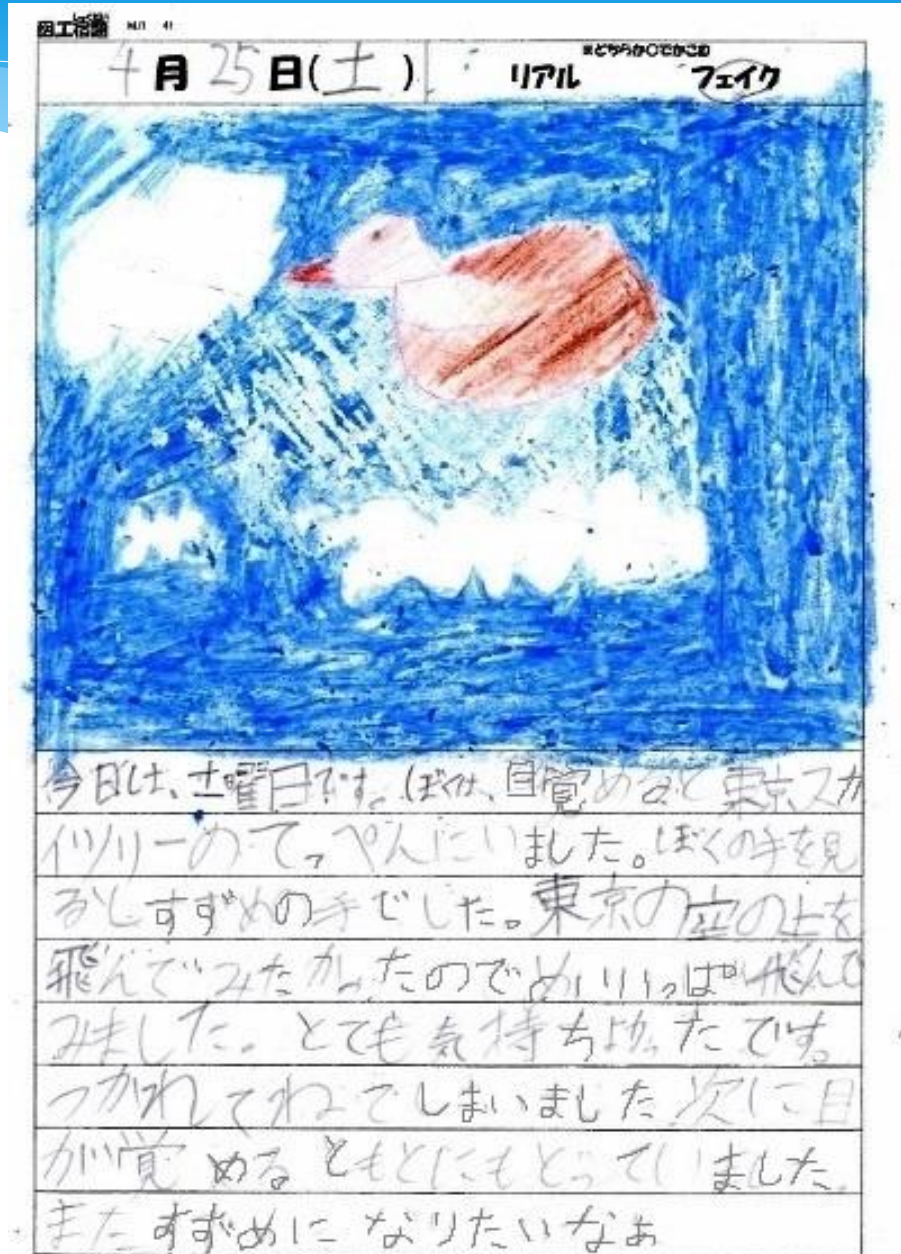 図工宿題
4月25日(土)
※どちらか○でかこむ
リアル フェイク
今日は、土曜日です。ぼくは、目覚めると東京スカ
イツリーのてっぺんにいました。ぼくの手を見
るとすずめの手でした。東京の空の上を
飛んでみたかったのでめいいっぱい飛んで
みました。とても気持ちよかったです。
つかれしてねてしまいました。次に目
が覚めるともとにもどっていました。
またすずめになりたいなぁ